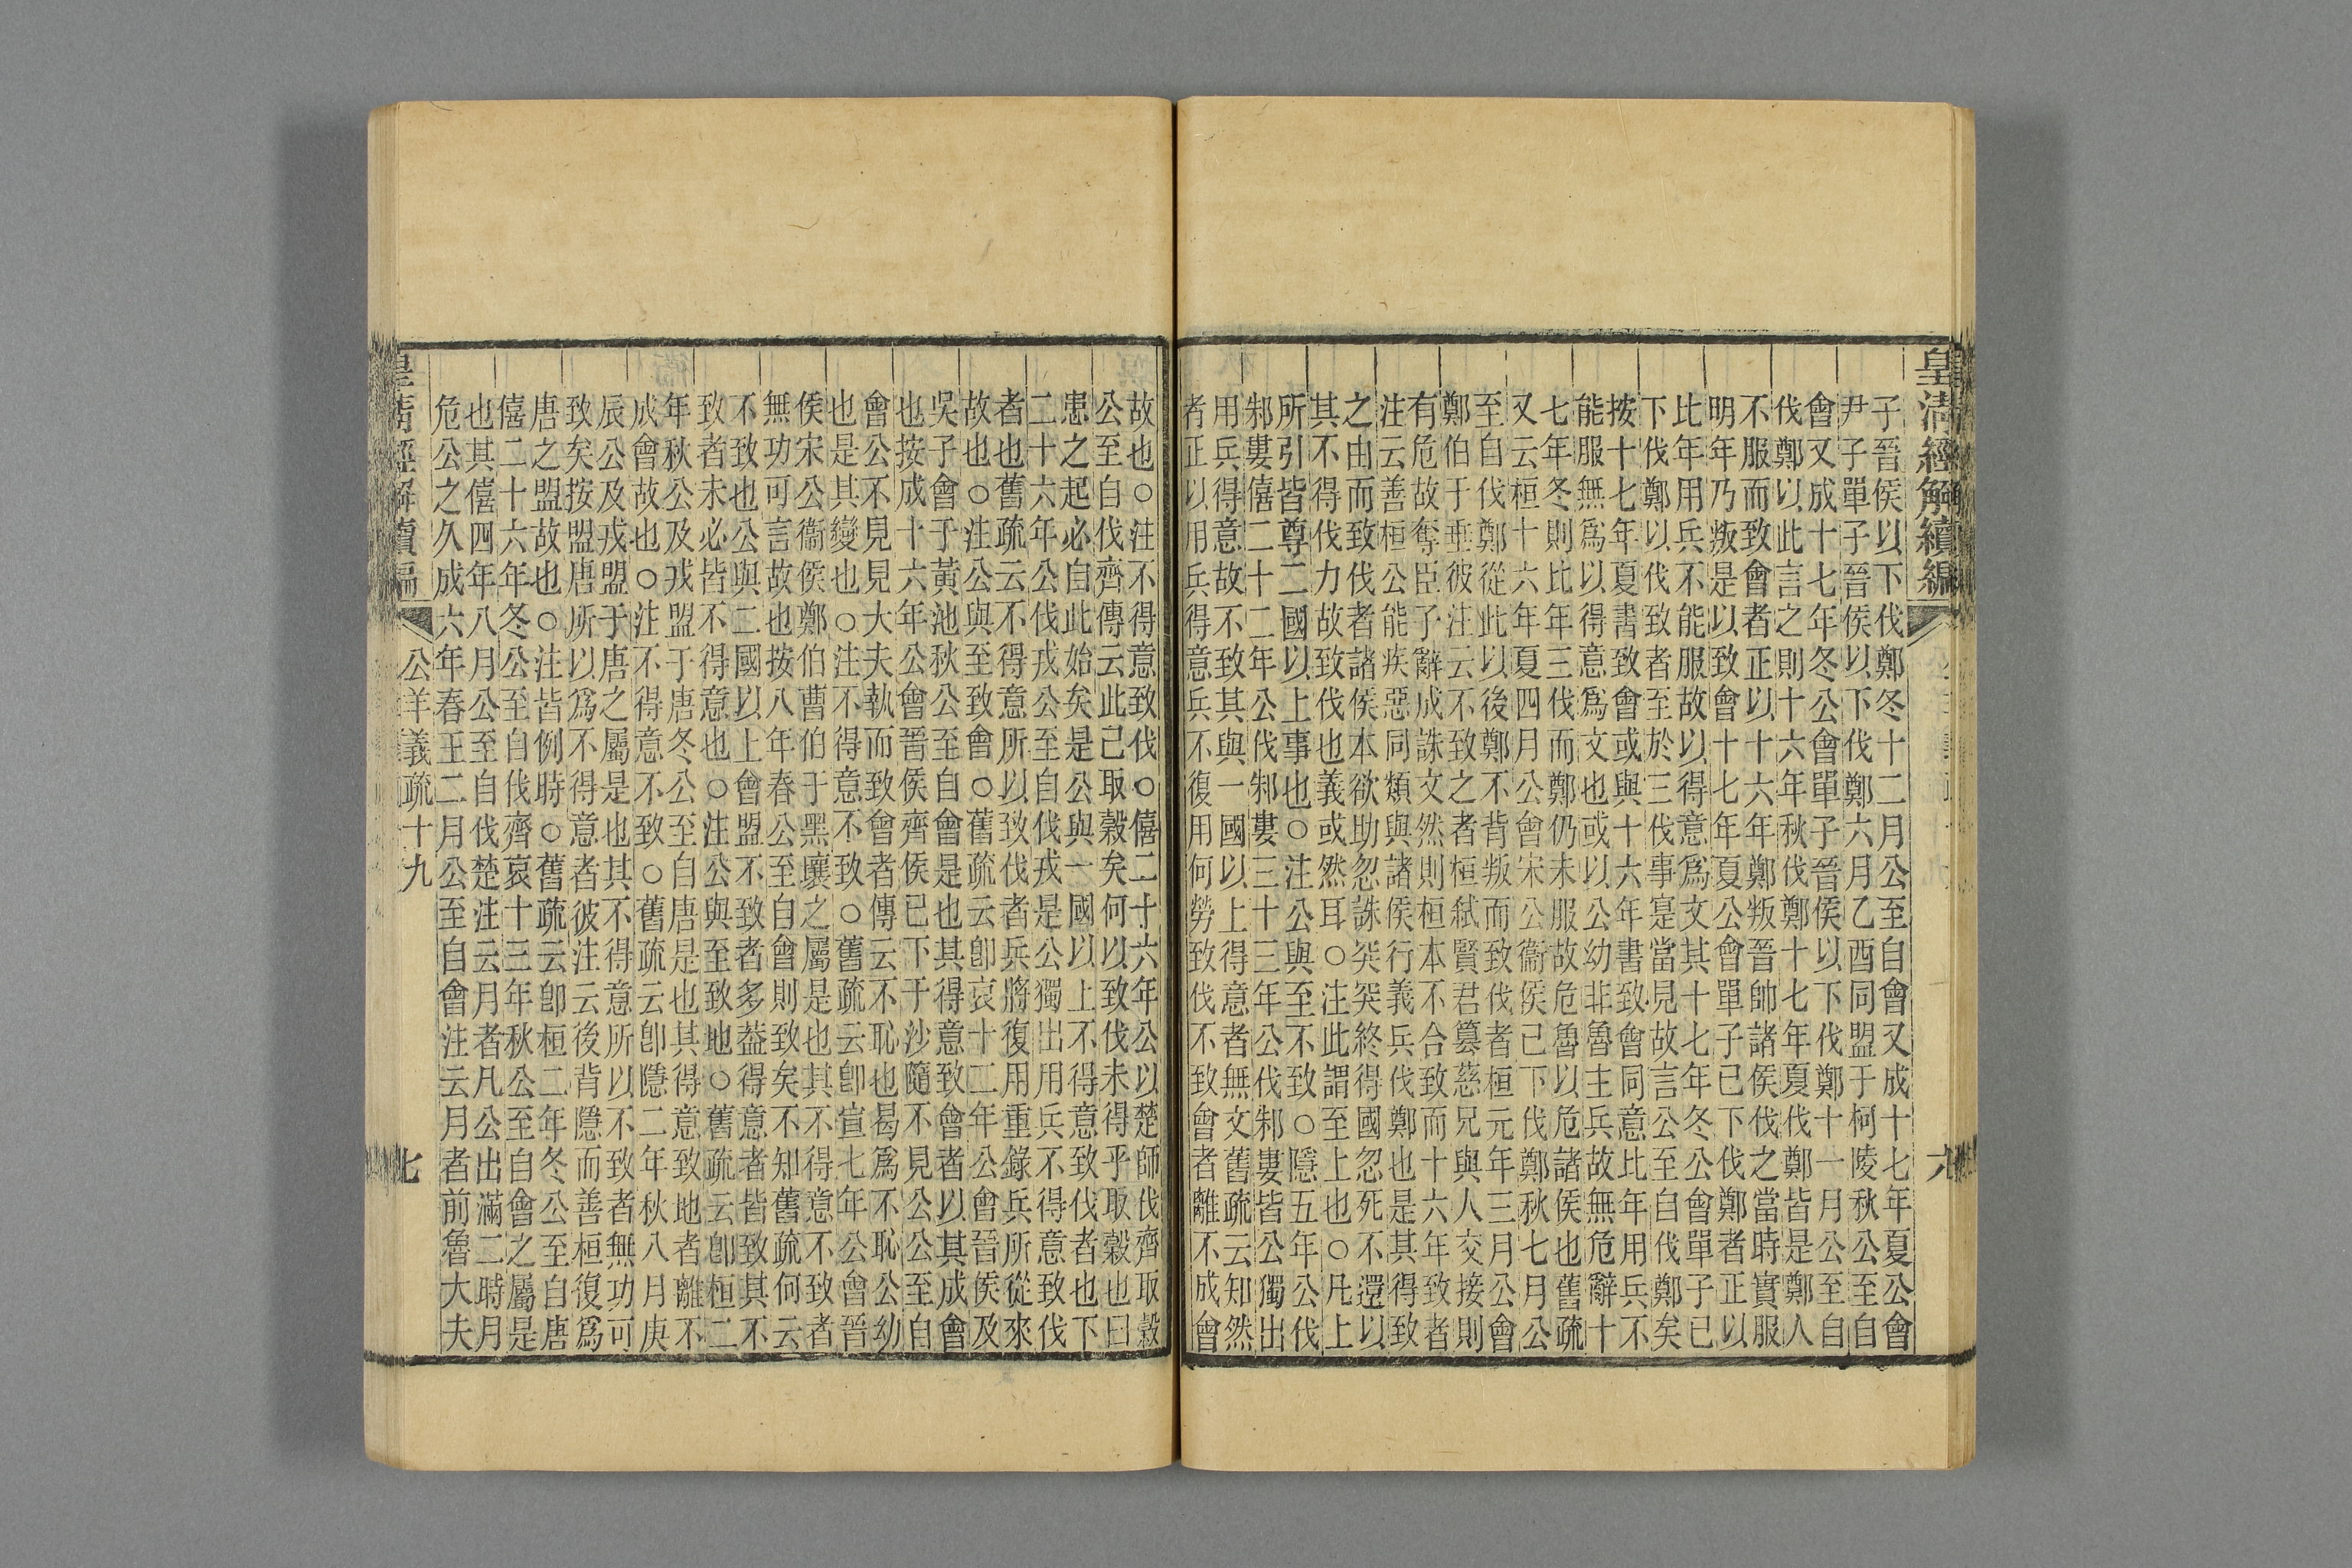 皇清經解續編
六
子晉侯以下伐鄭冬十二月公至自會又成十七年夏公會
尹子單子晉侯以下伐鄭六月乙酉同盟于柯陵秋公至自
會又成十七年冬公會單子晉侯以下伐鄭十一月公至自
伐鄭以此言之則十六年秋伐鄭十七年夏伐鄭皆是鄭人
不服而致會者正以十六年鄭叛晉帥諸侯伐之當時實服
明年乃叛是以致會十七年夏公會單子已下伐鄭者正以
比年用兵不能服故以得意爲文其十七年冬公會單子已
下伐鄭以伐致者至於三伐事寔當見故言公至自伐鄭矣
按十七年夏書致會或與十六年書致會同意比年用兵不
能服無爲以得意爲文也或以公幼非魯主兵故無危辭十
七年冬則比年三伐而鄭仍未服故危魯以危諸侯也舊疏
又云桓十六年夏四月公會宋公衞侯已下伐鄭秋七月公
至自伐鄭從此以後鄭不背叛而致伐者桓元年三月公會
鄭伯于垂彼注云不致之者桓弒賢君篡慈兄與人交接則
有危故奪臣子辭成誅文然則桓本不合致而十六年致者
注云善桓公能疾惡同類與諸侯行義兵伐鄭也是其得致
之由而致伐者諸侯本欲助忽誅突突終得國忽死不還以
其不得伐力故致伐也義或然耳○注此謂至上也○凡上
所引皆尊二國以上事也○注公與至不致○隱五年公伐
邾婁僖二十二年公伐邾婁三十三年公伐邾婁皆公獨出
用兵得意故不致其與一國以上得意者無文舊疏云知然
者正以用兵得意兵不復用何勞致伐不致會者離不成會
故也○注不得意致伐○僖二十六年公以楚師伐齊取穀
公至自伐齊傳云此已取穀矣何以致伐未得乎取穀也曰
患之起必自此始矣是公與一國以上不得意致伐者也下
二十六年公伐戎公至自伐戎是公獨出用兵不得意致伐
者也舊疏云不得意所以致伐者兵將復用重錄兵所從來
故也○注公與至致會○舊疏云卽哀十二年公會晉侯及
吳子會于黃池秋公至自會是也其得意致會者以其成會
也按成十六年公會晉侯齊侯已下于沙隨不見公公至自
會公不見見大夫執而致會者傳云不恥也曷爲不恥公幼
也是其變也○注不得意不致○舊疏云卽宣七年公會晉
侯宋公衞侯鄭伯曹伯于黑壤之屬是也其不得意不致者
無功可言故也按八年春公至自會則致矣不知舊疏何云
不致也公與二國以上會盟不致者多葢得意者皆致其不
致者未必皆不得意也○注公與至致地○舊疏云卽桓二
年秋公及戎盟于唐冬公至自唐是也其得意致地者離不
成會故也○注不得意不致○舊疏云卽隱二年秋八月庚
辰公及戎盟于唐之屬是也其不得意所以不致者無功可
致矣按盟唐所以爲不得意者彼注云後背隱而善桓復爲
唐之盟故也○注皆例時○舊疏云卽桓二年冬公至自唐
僖二十六年冬公至自伐齊哀十三年秋公至自會之屬是
也其僖四年八月公至自伐楚注云月者凡公出滿二時月
危公之久成六年春王二月公至自會注云月者前魯大夫
皇清經解續編
公羊義疏十九
七